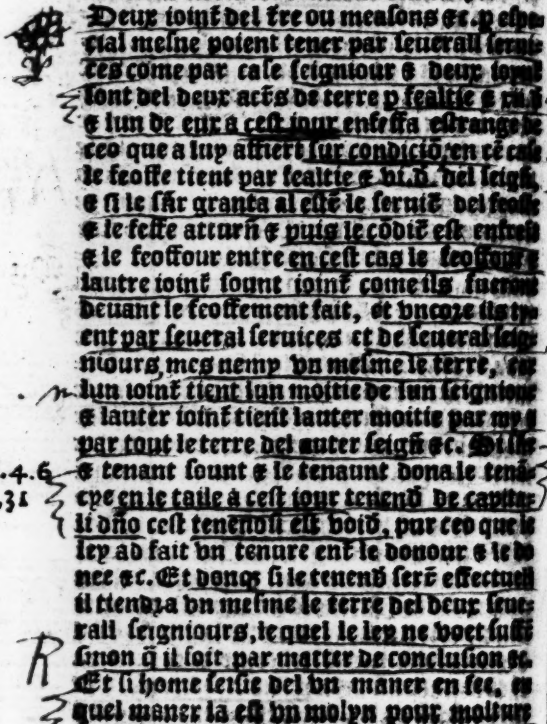 Deux ioint̄ del t̄re ou measons ⁊c. p espe=
cial mesne poient tener par seuerall serui=
ces come par case seigniour ⁊ deux ioynt
sont del deux act̄s de terre p fealtie ⁊
⁊ lun de eux a cest iour enfeffa estrange de
ceo que a luy affiert sur condiciō, en cē case
le feoffe tient par fealtie ⁊ vi.d̄. del seign̄,
⁊ si le sn̄r granta al est̄e le seruic̄ del feoffe
⁊ le feffe atturn̄ ⁊ puis le cōdic̄ est enfreint
⁊ le feoffour entre en cest cas le feoffour ⁊
lautre ioint̄ sount ioint̄ come ils fueront
deuant le feoffement fait, et vncore ils ty=
ent par seueral seruices et de seueral seig=
niours, mes nemy vn mesme le terre, car
lun ioint̄ tient lun moitie de lun seigniour
⁊ lauter ioint̄ tient lauter moitie par my ⁊
par tout le terre del auter seign̄ ⁊c.
.4.6 ⁊ tenant sount ⁊ le tenaunt dona le tenā=
,31 cye en le taile a cest iour tenend̄ de capita=
li dn̄o cest tenendū est void̄, pur ceo que le
ley ad fait vn tenure ent̄ le donour ⁊ le do
nee ⁊c. Et donqȝ si le tenend̄ serr̄ effectuell
il tiendra vn mesme le terre del deux seue=
rall seigniours, le quel le ley ne voet suffr̄
R sinon q̄ il soit par matter de conclusion ⁊c.
Et si home seisie del vn maner en fee, en
quel maner la est vn molyn pour molture